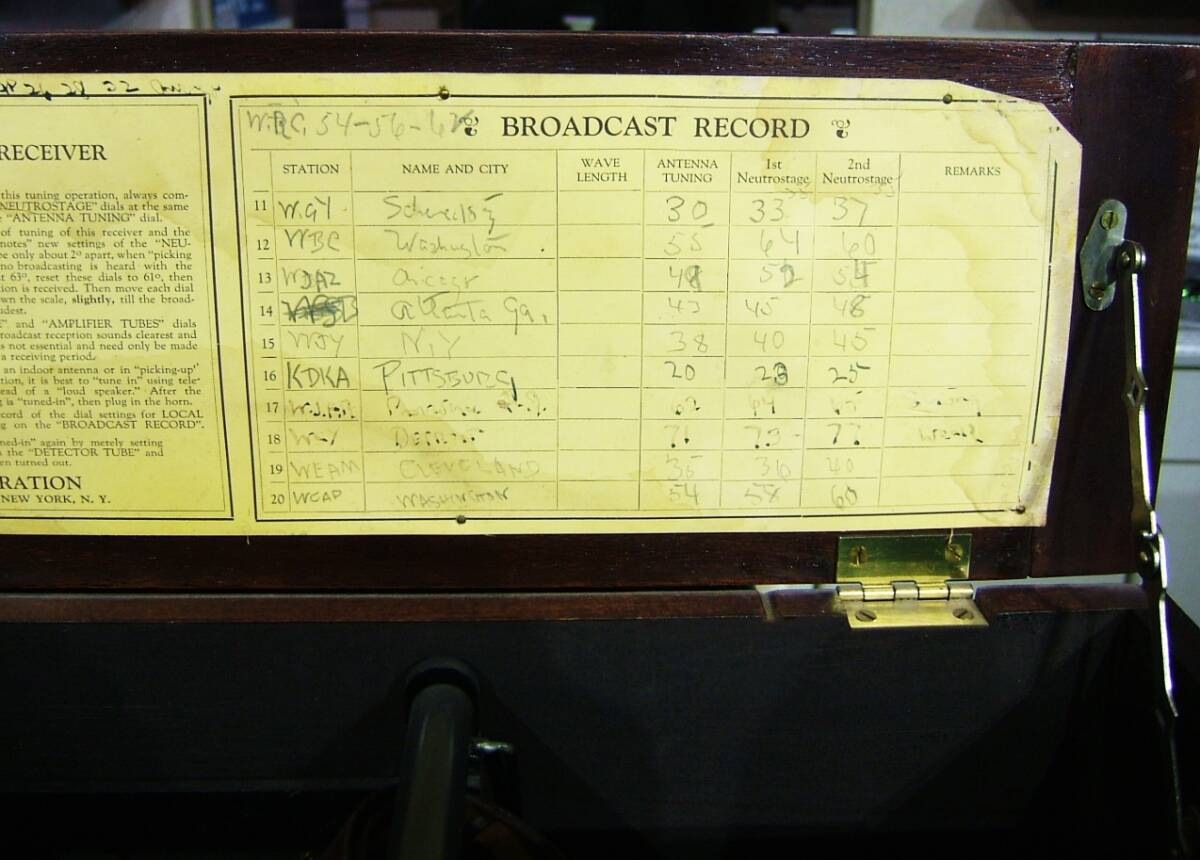 RECEIVER
this tuning operation, always com-
NEUTROSTAGE" dials at the same
"ANTENNA TUNING" dial.
of tuning of this receiver and the
notes" new settings of the "NEU-
be only about 2° apart, when "picking
no broadcasting is heard with the
63°, reset these dials to 61°, then
tion is received. Then move each dial
wn the scale, slightly, till the broad-
udest.
" and "AMPLIFIER TUBES" dials
roadcast reception sounds clearest and
s not essential and need only be made
a receiving period.
an indoor antenna or in "picking-up"
tion, it is best to "tune in" using tele-
ead of a "loud speaker." After the
g is "tuned-in", then plug in the horn.
cord of the dial settings for LOCAL
g on the "BROADCAST RECORD".
ned-in" again by merely setting
the "DETECTOR TUBE" and
en turned out.
RATION
NEW YORK, N. Y.
54-56-
BROADCAST RECORD
STATION NAME AND CITY WAVE LENGTH ANTENNA TUNING 1st Neutrostage 2nd Neutrostage REMARKS
11 W.GY 30 33 37
12 Washington 55 64 60
13 Chicago
14 Atlanta Ga. 43 45 48
15 WJY N.Y 38 40 45
16 KDKA PITTSBURG 20 23 25
17 62 64 65
18 Detroit 71 73 77 weak
19 WEAM CLEVELAND 35 36 40
20 WCAP WASHINGTON 54 58 60